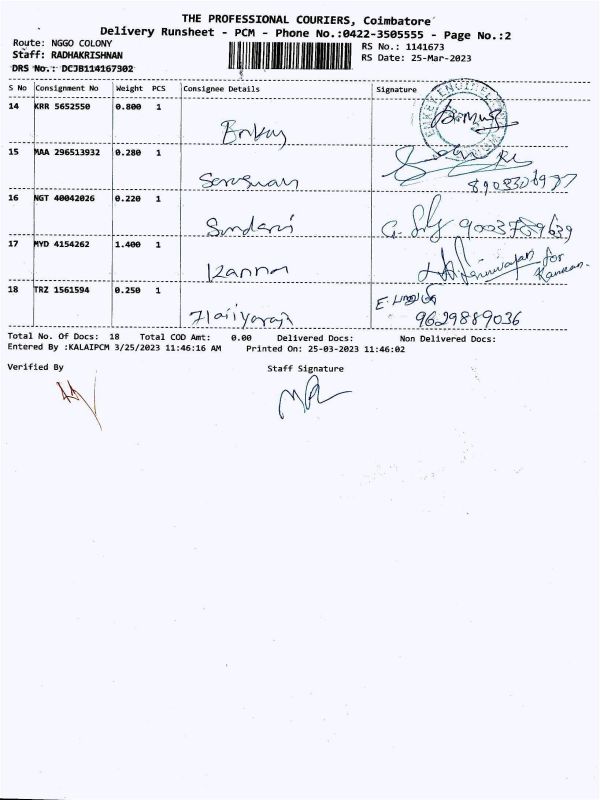 THE PROFESSIONAL COURIERS, Coimbatore
Delivery Runsheet - PCM - Phone No.:0422-3505555 - Page No.:2
Route: NGGO COLONY
RS No.: 1141673
Staff: RADHAKRISHNAN
RS Date: 25-Mar-2023
DRS No.: DCJB114167302
S No Consignment No Weight PCS Consignee Details Signature
14 KRR 5652550 0.800 1
15 MAA 296513932 0.280 1
16 NGT 40042026 0.220 1
Sundari 9003789639
17 MYD 4154262 1.400 1
Kannan for Kannan.
18 TRZ 1561594 0.250 1
9629889036
Total No. Of Docs: 18 Total COD Amt: 0.00 Delivered Docs: Non Delivered Docs:
Entered By :KALAIPCM 3/25/2023 11:46:16 AM Printed On: 25-03-2023 11:46:02
Verified By Staff Signature